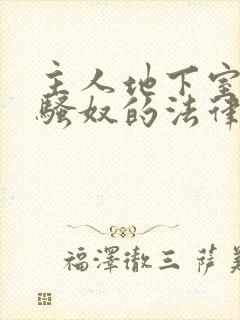 主人地下室
骚奴的法律
福澤徹三 萨美